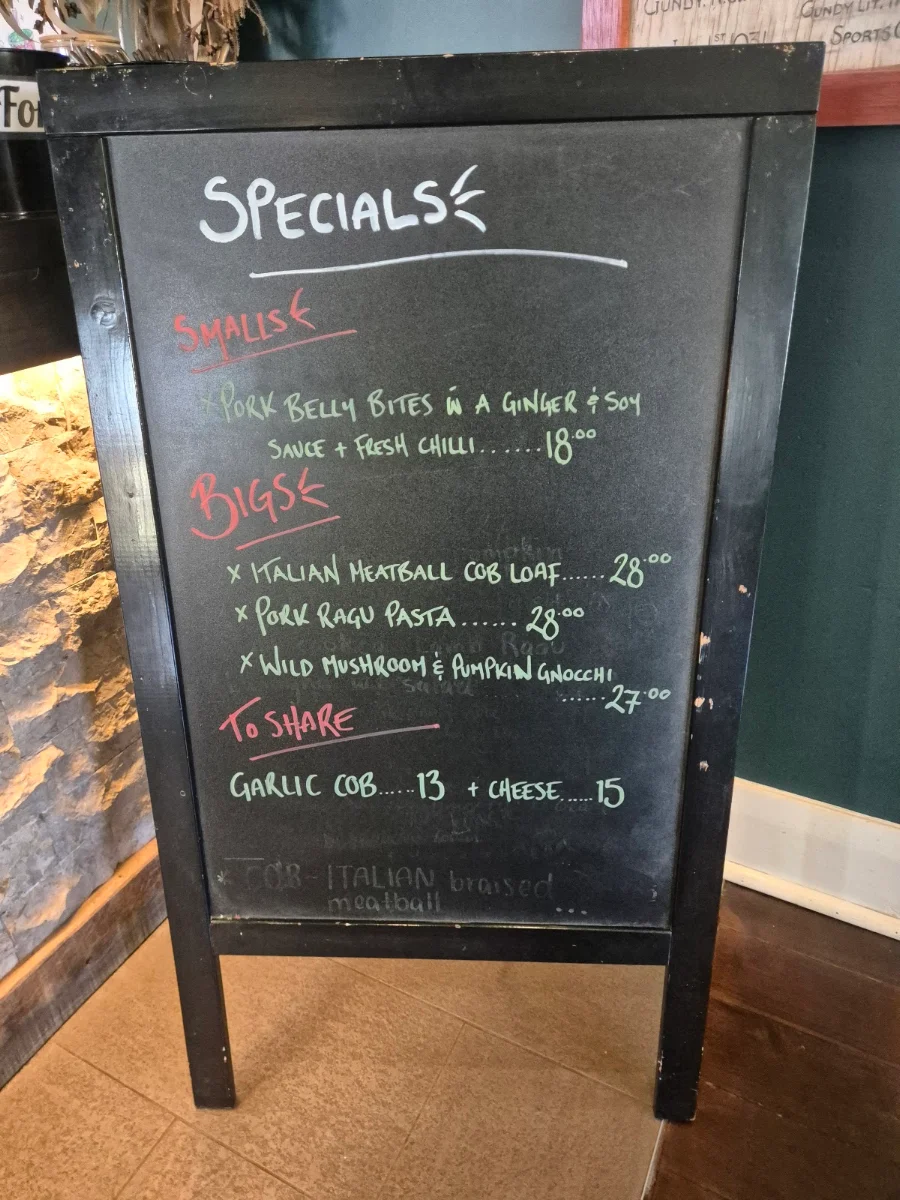 GUNDY
GUNDY LIT.
SPORTS
Fo
SPECIALS
SMALLS
x PORK BELLY BITES in A GINGER & SOY
SAUCE + FRESH CHILLI.......18.00
BIGS
x ITALIAN MEATBALL COB LOAF......28.00
x PORK RAGU PASTA.......28.00
x WILD MUSHROOM & PUMPKIN GNOCCHI
......27.00
TO SHARE
GARLIC COB.....13 + CHEESE.....15
x COB-ITALIAN braised
meatball ...